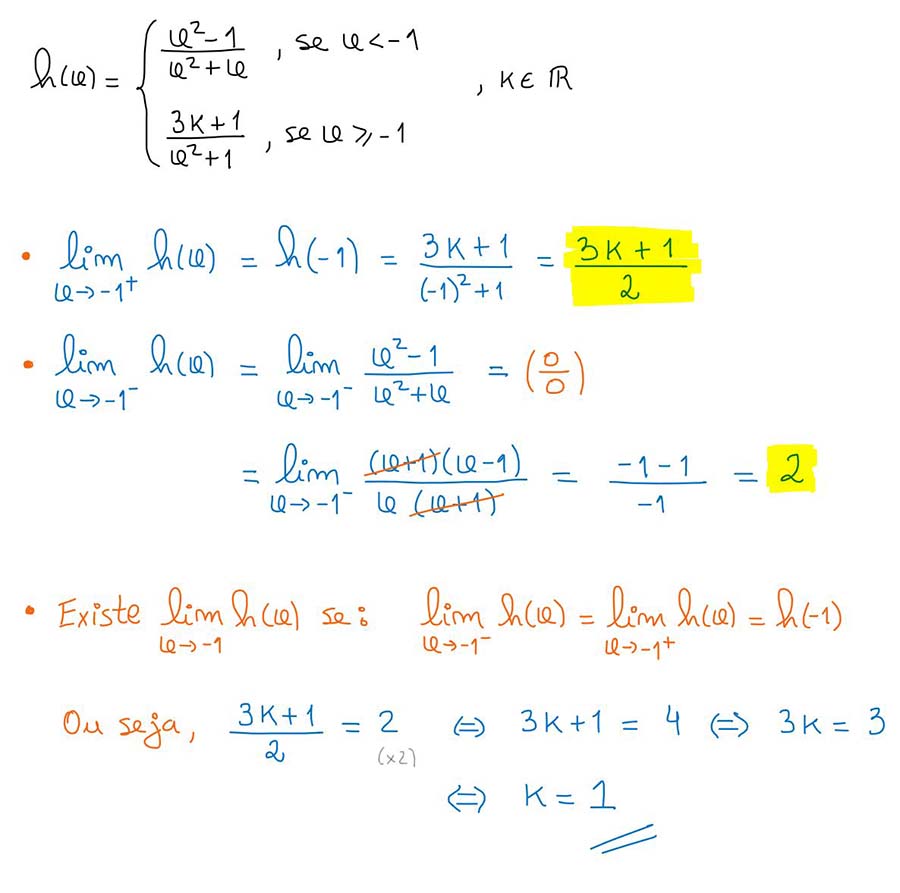 h(x) = { (x² - 1)/(x² + x) , se x < -1
(3K + 1)/(x² + 1) , se x ⩾ -1 , K ∈ ℝ
• lim x→-1⁺ h(x) = h(-1) = (3K + 1)/((-1)² + 1) = (3K + 1)/2
• lim x→-1⁻ h(x) = lim x→-1⁻ (x² - 1)/(x² + x) = (0/0)
= lim x→-1⁻ ((x+1)(x-1))/(x(x+1)) = (-1 - 1)/(-1) = 2
• Existe lim x→-1 h(x) se: lim x→-1⁻ h(x) = lim x→-1⁺ h(x) = h(-1)
Ou seja, (3K + 1)/2 = 2 (×2) ⇔ 3K + 1 = 4 ⇔ 3K = 3
⇔ K = 1